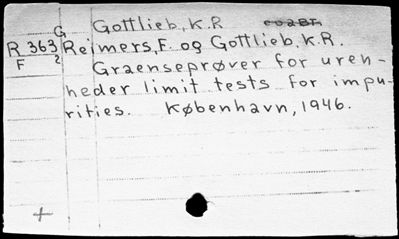 G Gottlieb, K.R
R 363 2 Reimers, F. og Gottlieb, K.R.
F Graenseprøver for uren-
heder limit tests for impu-
rities. København, 1946.